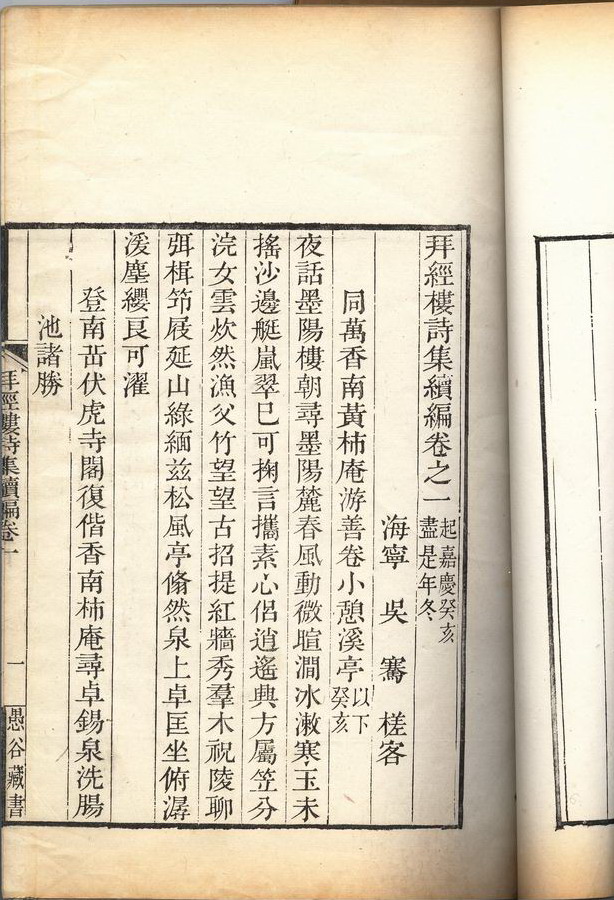 拜經樓詩集續編卷之一 起嘉慶癸亥
盡是年冬
海寧 吳 騫 槎客
同萬香南黃柿庵游善卷小憩溪亭 以下
癸亥
夜話墨陽樓朝尋墨陽麓春風動微暄澗冰漱寒玉未
搖沙邊艇嵐翠巳可掬言攜素心侶逍遙興方屬笠分
浣女雲炊然漁父竹望望古招提紅牆秀羣木祝陵聊
弭楫筇屐延山綠緬兹松風亭翛然泉上卓匡坐俯潺
湲塵纓良可濯
登南岳伏虎寺閣復偕香南柿庵尋卓錫泉洗腸
池諸勝
拜經樓詩集續編卷一
一
愚谷藏書